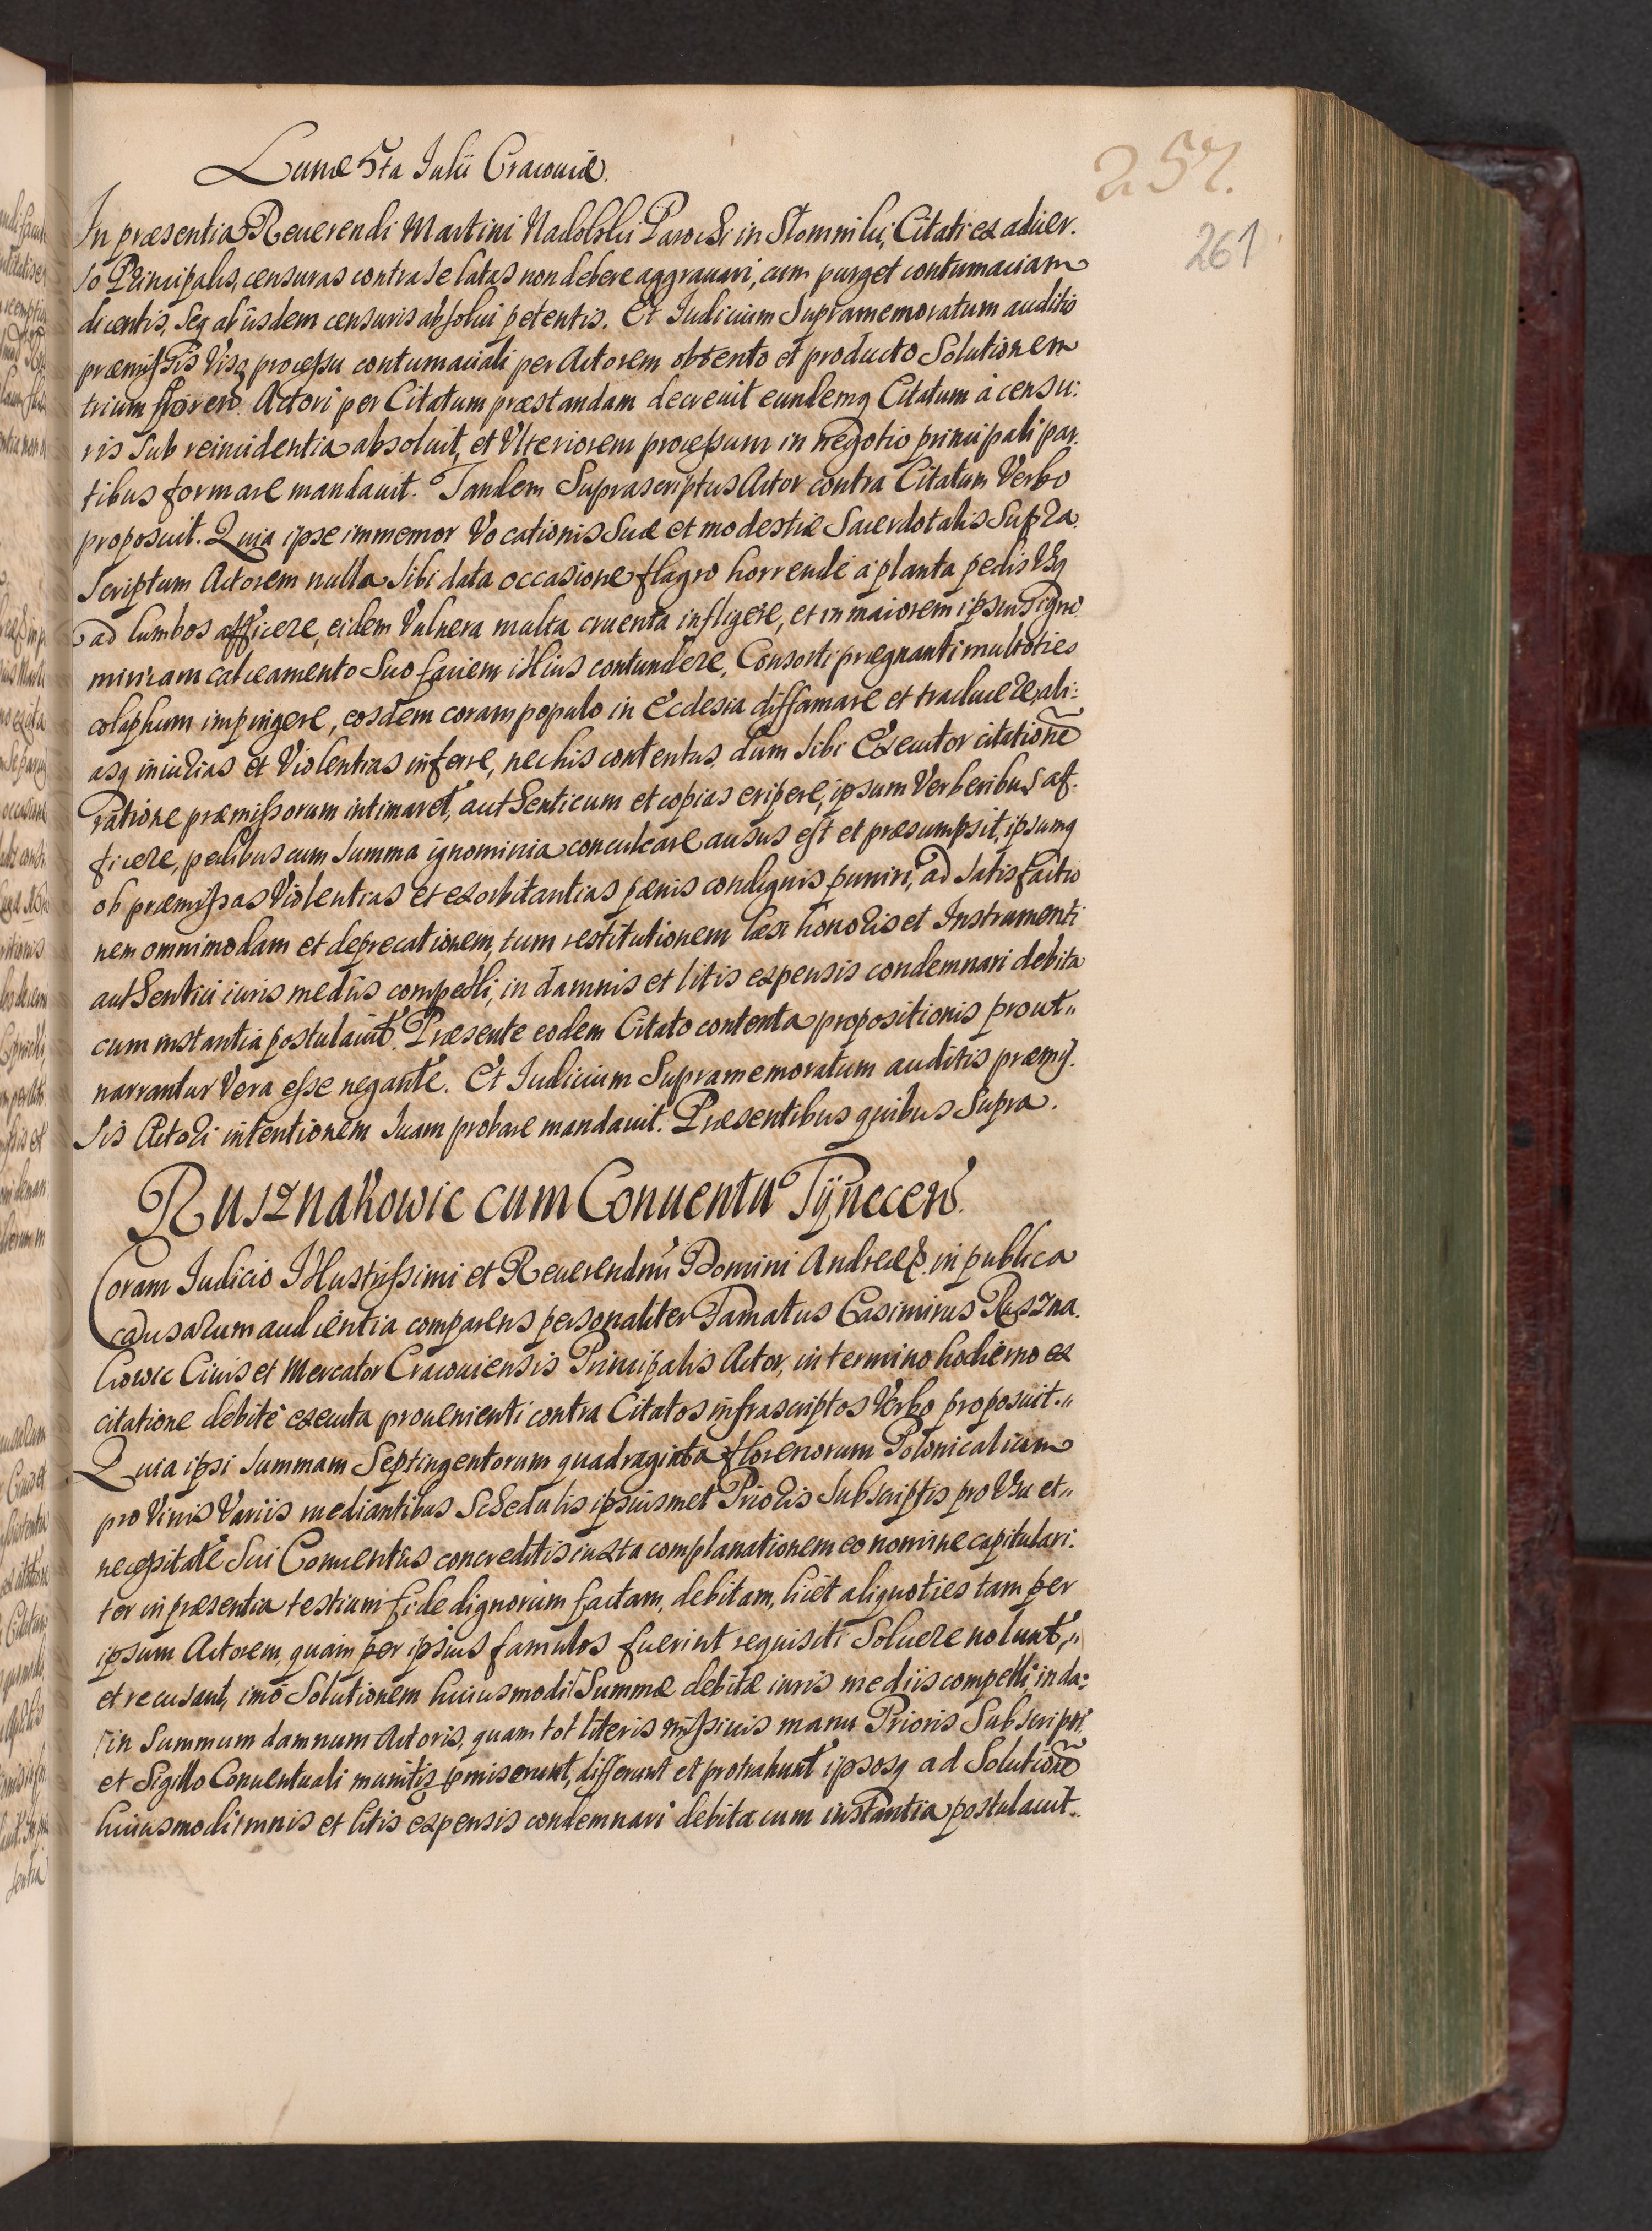 Lunæ 5ta Julii Cracouiæ.
257.
261
In præsentia Reuerendi Martini Nadolski Parochi in Stomniki, Citati ex aduer.
so Principalis, censuras contra se latas non debere aggrauari, cum purget contumaciam
dicentis, seq ab iisdem censuris absolui petentis. Et Iudicium Supramemoratum auditis
præmissis Visq processu contumaciali per Actorem obtento et producto Solutionem
trium floren. Actori per Citatum præstandam decreuit eundemq Citatum à censu:
ris sub reincidentia absoluit, et Vlteriorem processum in negotio principali par.
tibus formare mandauit. Tandem Suprascriptus Actor contra Citatum Verbo
proposuit. Quia ipse immemor Vocationis Suæ et modestiæ Sacerdotalis Supra.
scriptum Actorem nulla sibi data occasione flagro horrendè a planta pedis Vsq
ad lumbos afficere, eidem Vulnera multa cruenta infligere, et in maiorem ipsius igno
miniam calceamento Suo faciem illius contundere, Consorti prægnanti multoties
colaphum impingere, eosdem coram populo in Ecclesia diffamare et traducere, ali:
asq iniurias et Violentias inferre, nec his contentus, dum sibi Executor citationē
ratione præmissorum intimaret, authenticum et copias eripere, ipsum Verberibus af.
ficere, pedibus cum summa ignominia conculcare ausus est et præsumpsit, ipsumq
ob præmissas Violentias et exorbitantias pænis condignis puniri, ad satisfactio
nem omnimodam et deprecationem, tum restitutionem læsi honoris et Instrumenti
authentici iuris mediis compelli, in damnis et litis expensis condemnari debita
cum instantia postulauit. Præsente eodem Citato contenta propositionis prout„
narrantur Vera esse negante. Et Iudicium Supramemoratum auditis præmis.
sis Actori intentionem suam probare mandauit. Præsentibus quibus Supra.
Rusznakowic cum Conuentu Tÿnecen.
Coram Iudicio Illustrissimi et Reuerendmi Domini Andreæ &. in publica
causarum audientia comparens personaliter Famatus Casimirus Ruszna.
kowic Ciuis et Mercator Cracouiensis Principalis Actor, in termino hodierno ex
citatione debitè executa prouenienti contra Citatos infrascriptos Verbo proposuit.„
Quia ipsi summam Septingentorum quadraginta florenorum Polonicalium
pro Vinis Variis mediantibus Schedulis ipsiusmet Prioris subscriptis pro Vsu et„
necessitate Sui Conuentûs concreditis iuxta complanationem eo nomine capitulari:
ter in præsentia testium fide dignorum factam, debitam, licèt aliquoties tam per
ipsum Actorem, quàm per ipsius famulos fuerint requisiti Soluere nolunt,„
et recusant, imò Solutionem huiusmodi Summæ debitæ iuris mediis compelli, in da:
in summum damnum Actoris, quam tot literis missiuis manu Prioris Subscriptis
et Sigillo Conuentuali munitis pmiserunt, differunt et protrahunt ipsosq ad Solutionē
huiusmodi mnis et litis expensis condemnari debita cum instantia postulauit.